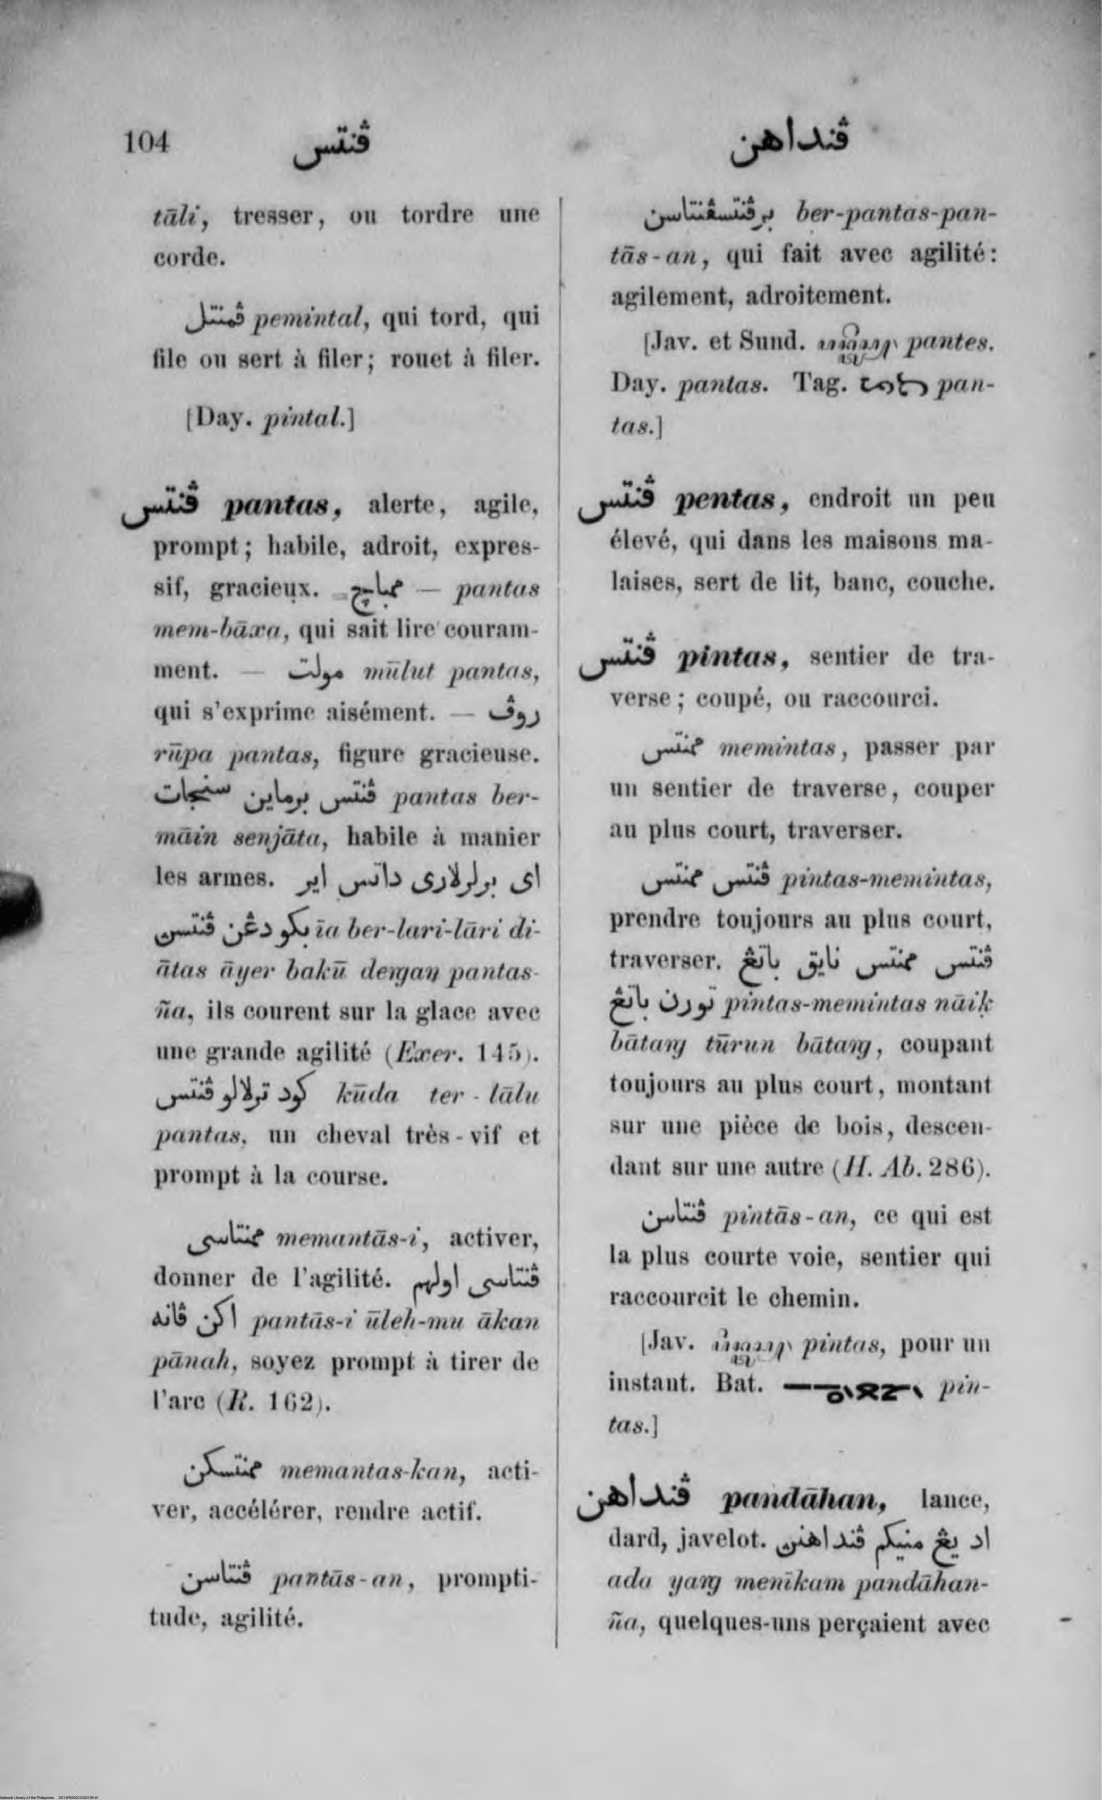 104
ڤنتس
ڤنداهن
tāli, tresser, ou tordre une
corde.
ڤمنتل pemintal, qui tord, qui
file ou sert à filer; rouet à filer.
[Day. pintal.]
ڤنتس pantas, alerte, agile,
prompt; habile, adroit, expres-
sif, gracieux. ممباچ — pantas
mem-bāxa, qui sait lire couram-
ment. — مولت mūlut pantas,
qui s'exprime aisément. — روڤ
rūpa pantas, figure gracieuse.
ڤنتس برماين سنجات pantas ber-
māin senjāta, habile à manier
les armes. اى برلرلارى داتس اير
بكو دڠن ڤنتسن īa ber-lari-lāri di-
ātas āyer bakū deŋgaŋ pantas-
ña, ils courent sur la glace avec
une grande agilité (Exer. 145).
كود ترلالو ڤنتس kūda ter-lālu
pantas, un cheval très-vif et
prompt à la course.
ممنتاسى memantās-i, activer,
donner de l'agilité. ڤنتاسى اولهم
اكن ڤانه pantās-i ūleh-mu ākan
pānah, soyez prompt à tirer de
l'arc (R. 162).
ممنتسكن memantas-kan, acti-
ver, accélérer, rendre actif.
ڤنتاسن pantās-an, prompti-
tude, agilité.
برڤنتسڤنتاسن ber-pantas-pan-
tās-an, qui fait avec agilité:
agilement, adroitement.
[Jav. et Sund. pantes.
Day. pantas. Tag. pan-
tas.]
ڤنتس pentas, endroit un peu
élevé, qui dans les maisons ma-
laises, sert de lit, banc, couche.
ڤنتس pintas, sentier de tra-
verse; coupé, ou raccourci.
ممنتس memintas, passer par
un sentier de traverse, couper
au plus court, traverser.
ڤنتس ممنتس pintas-memintas,
prendre toujours au plus court,
traverser. ڤنتس ممنتس نايق باتڠ
تورن باتڠ pintas-memintas nāiḳ
bātaŋg tūrun bātaŋg, coupant
toujours au plus court, montant
sur une pièce de bois, descen-
dant sur une autre (H. Ab. 286).
ڤنتاسن pintās-an, ce qui est
la plus courte voie, sentier qui
raccourcit le chemin.
[Jav. pintas, pour un
instant. Bat. pin-
tas.]
ڤنداهن pandāhan, lance,
dard, javelot. اد يڠ منيكم ڤنداهنن
ada yaŋg menīkam pandāhan-
ña, quelques-uns perçaient avec